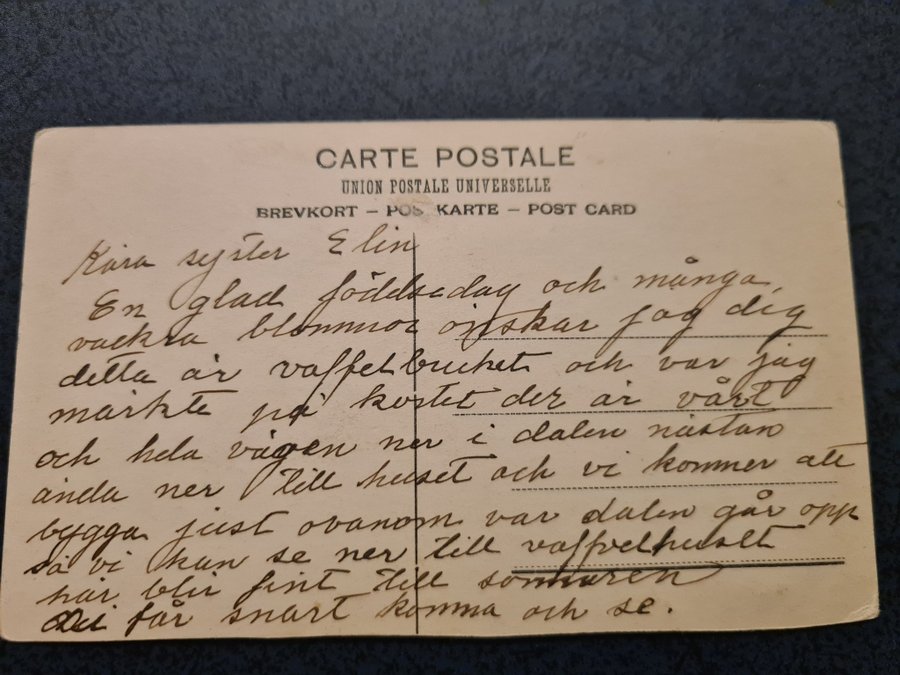 CARTE POSTALE
UNION POSTALE UNIVERSELLE
BREVKORT – POS KARTE – POST CARD
Kära syster Elin
En glad födelsedag och många
vackra blommor önskar jag dig
detta är vaffelbruket och var jag
märkte på kortet der är vårt
och hela vägen ner i dalen nästan
ända ner till huset och vi kommer att
bygga just ovanom var dalen går opp
så vi kan se ner till vaffelhuset
här blir fint till sommaren
du får snart komma och se.